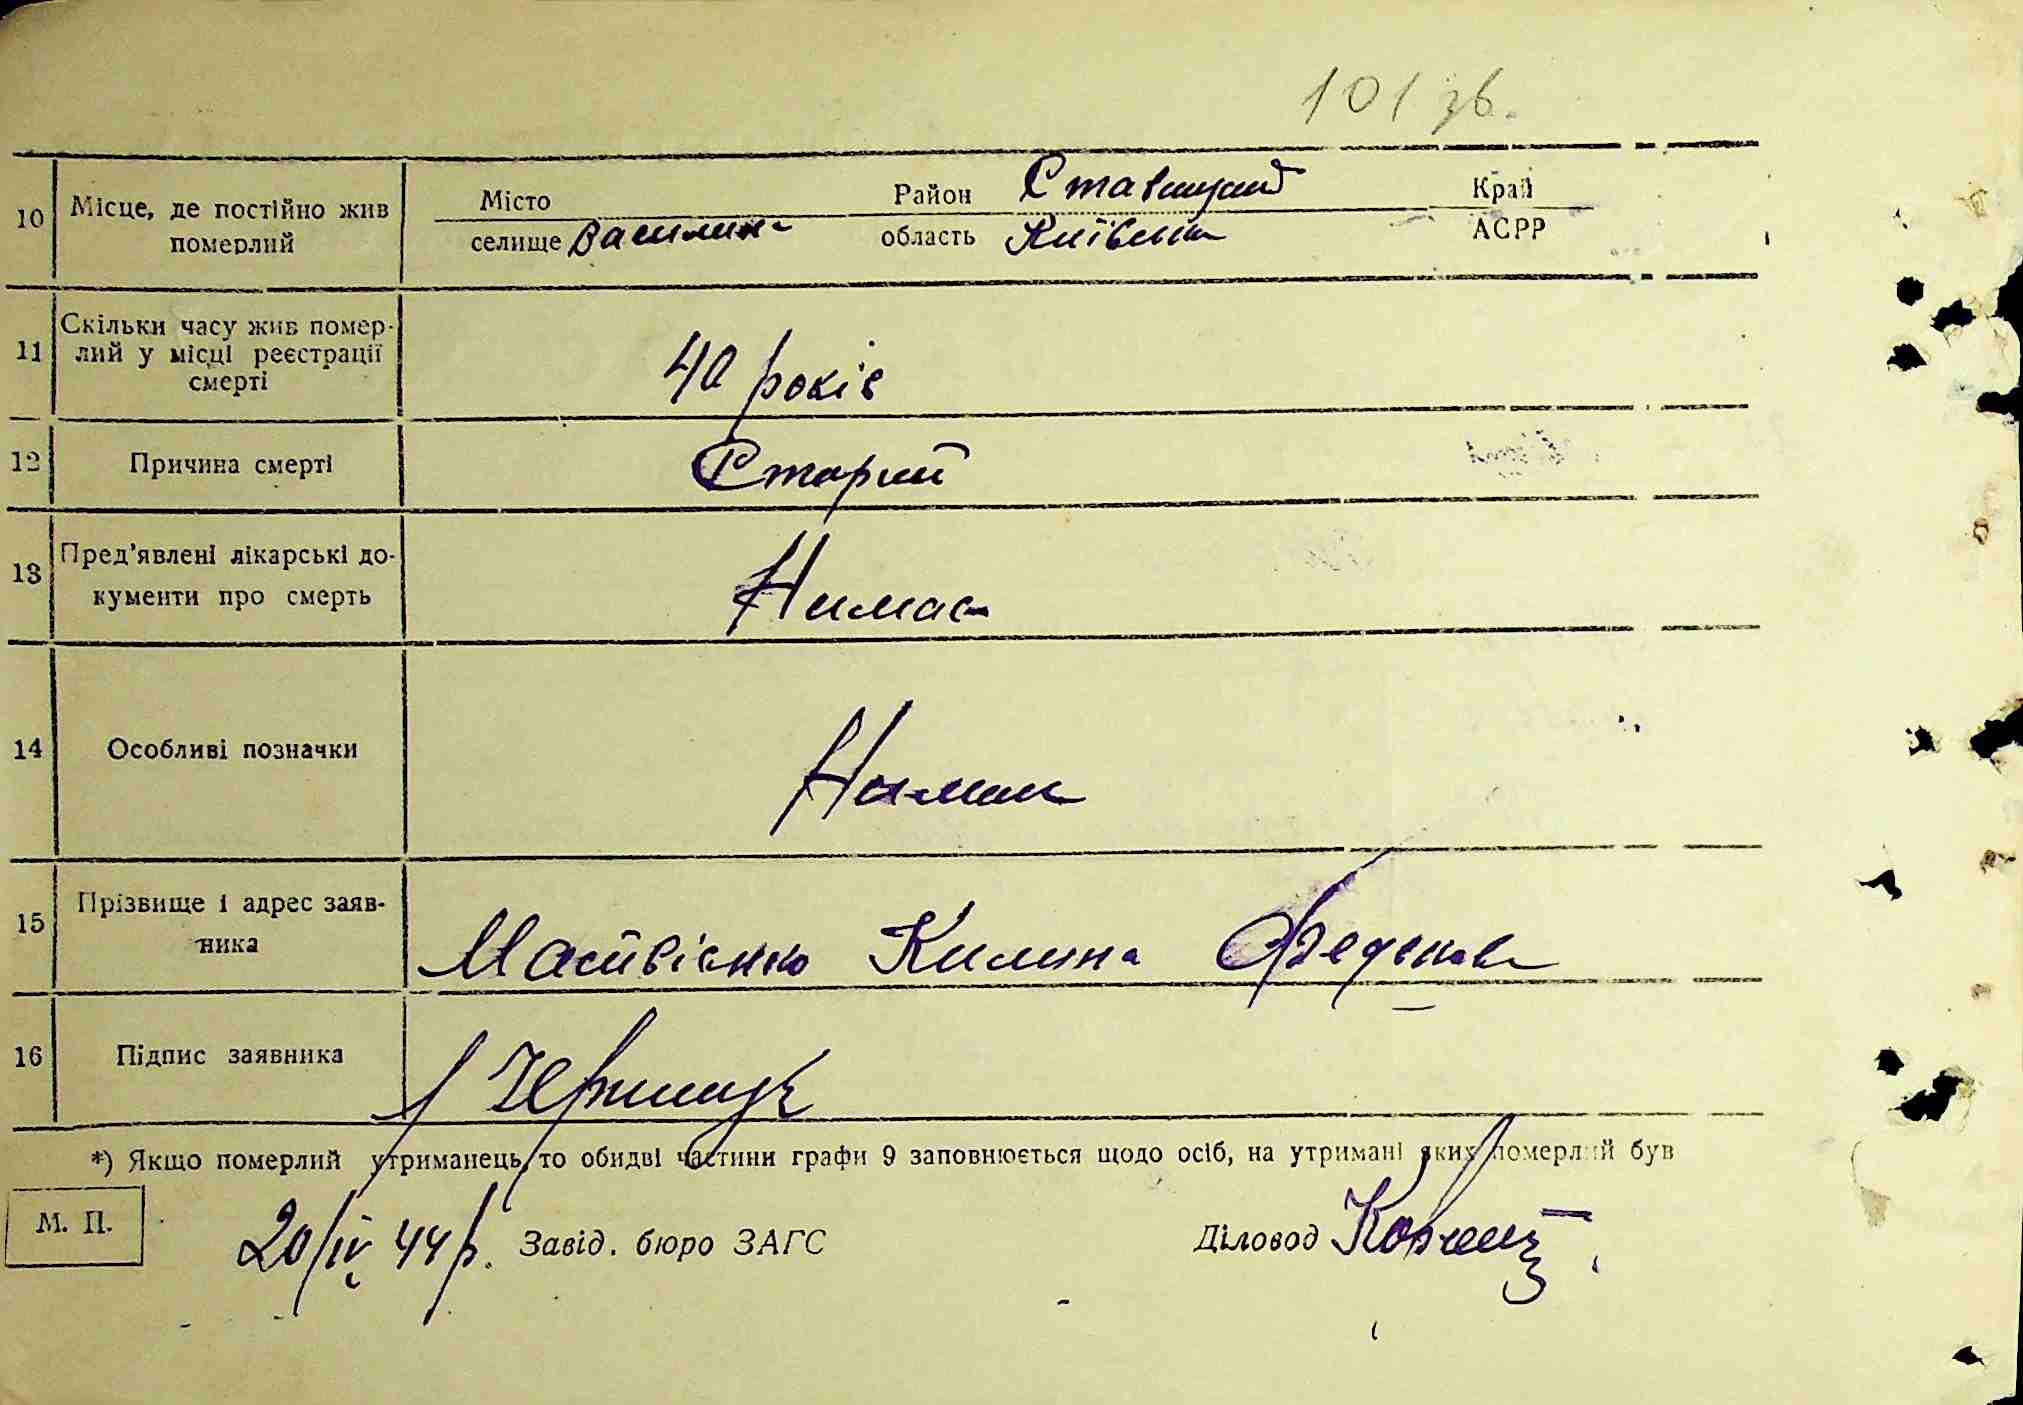 101 зв.
10 Місце, де постійно жив померлий Місто Район Ставищий Край
селище Василиха область Київська АСРР
11 Скільки часу жив помер-
лий у місці реєстрації
смерті
40 років
12 Причина смерті Старий
13 Пред’явлені лікарські до-
кументи про смерть
Нимає
14 Особливі позначки Нимає
15 Прізвище і адрес заяв-
ника
Матвієнко Килина
16 Підпис заявника
*) Якщо померлий утриманець, то обидві частини графи 9 заповнюється щодо осіб, на утримані яких померлий був
М. П.
20/IV 44 р. Завід. бюро ЗАГС Діловод